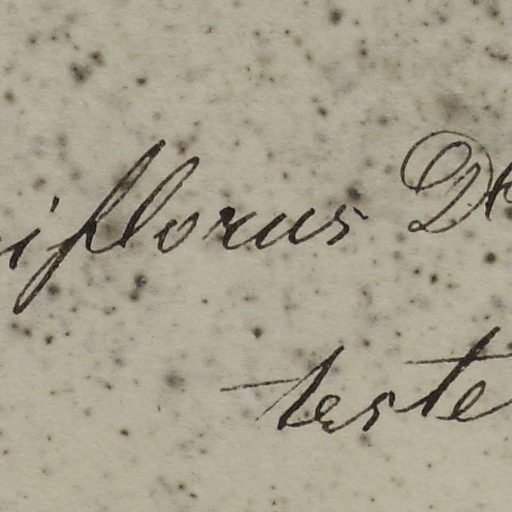 iflorus D
teste